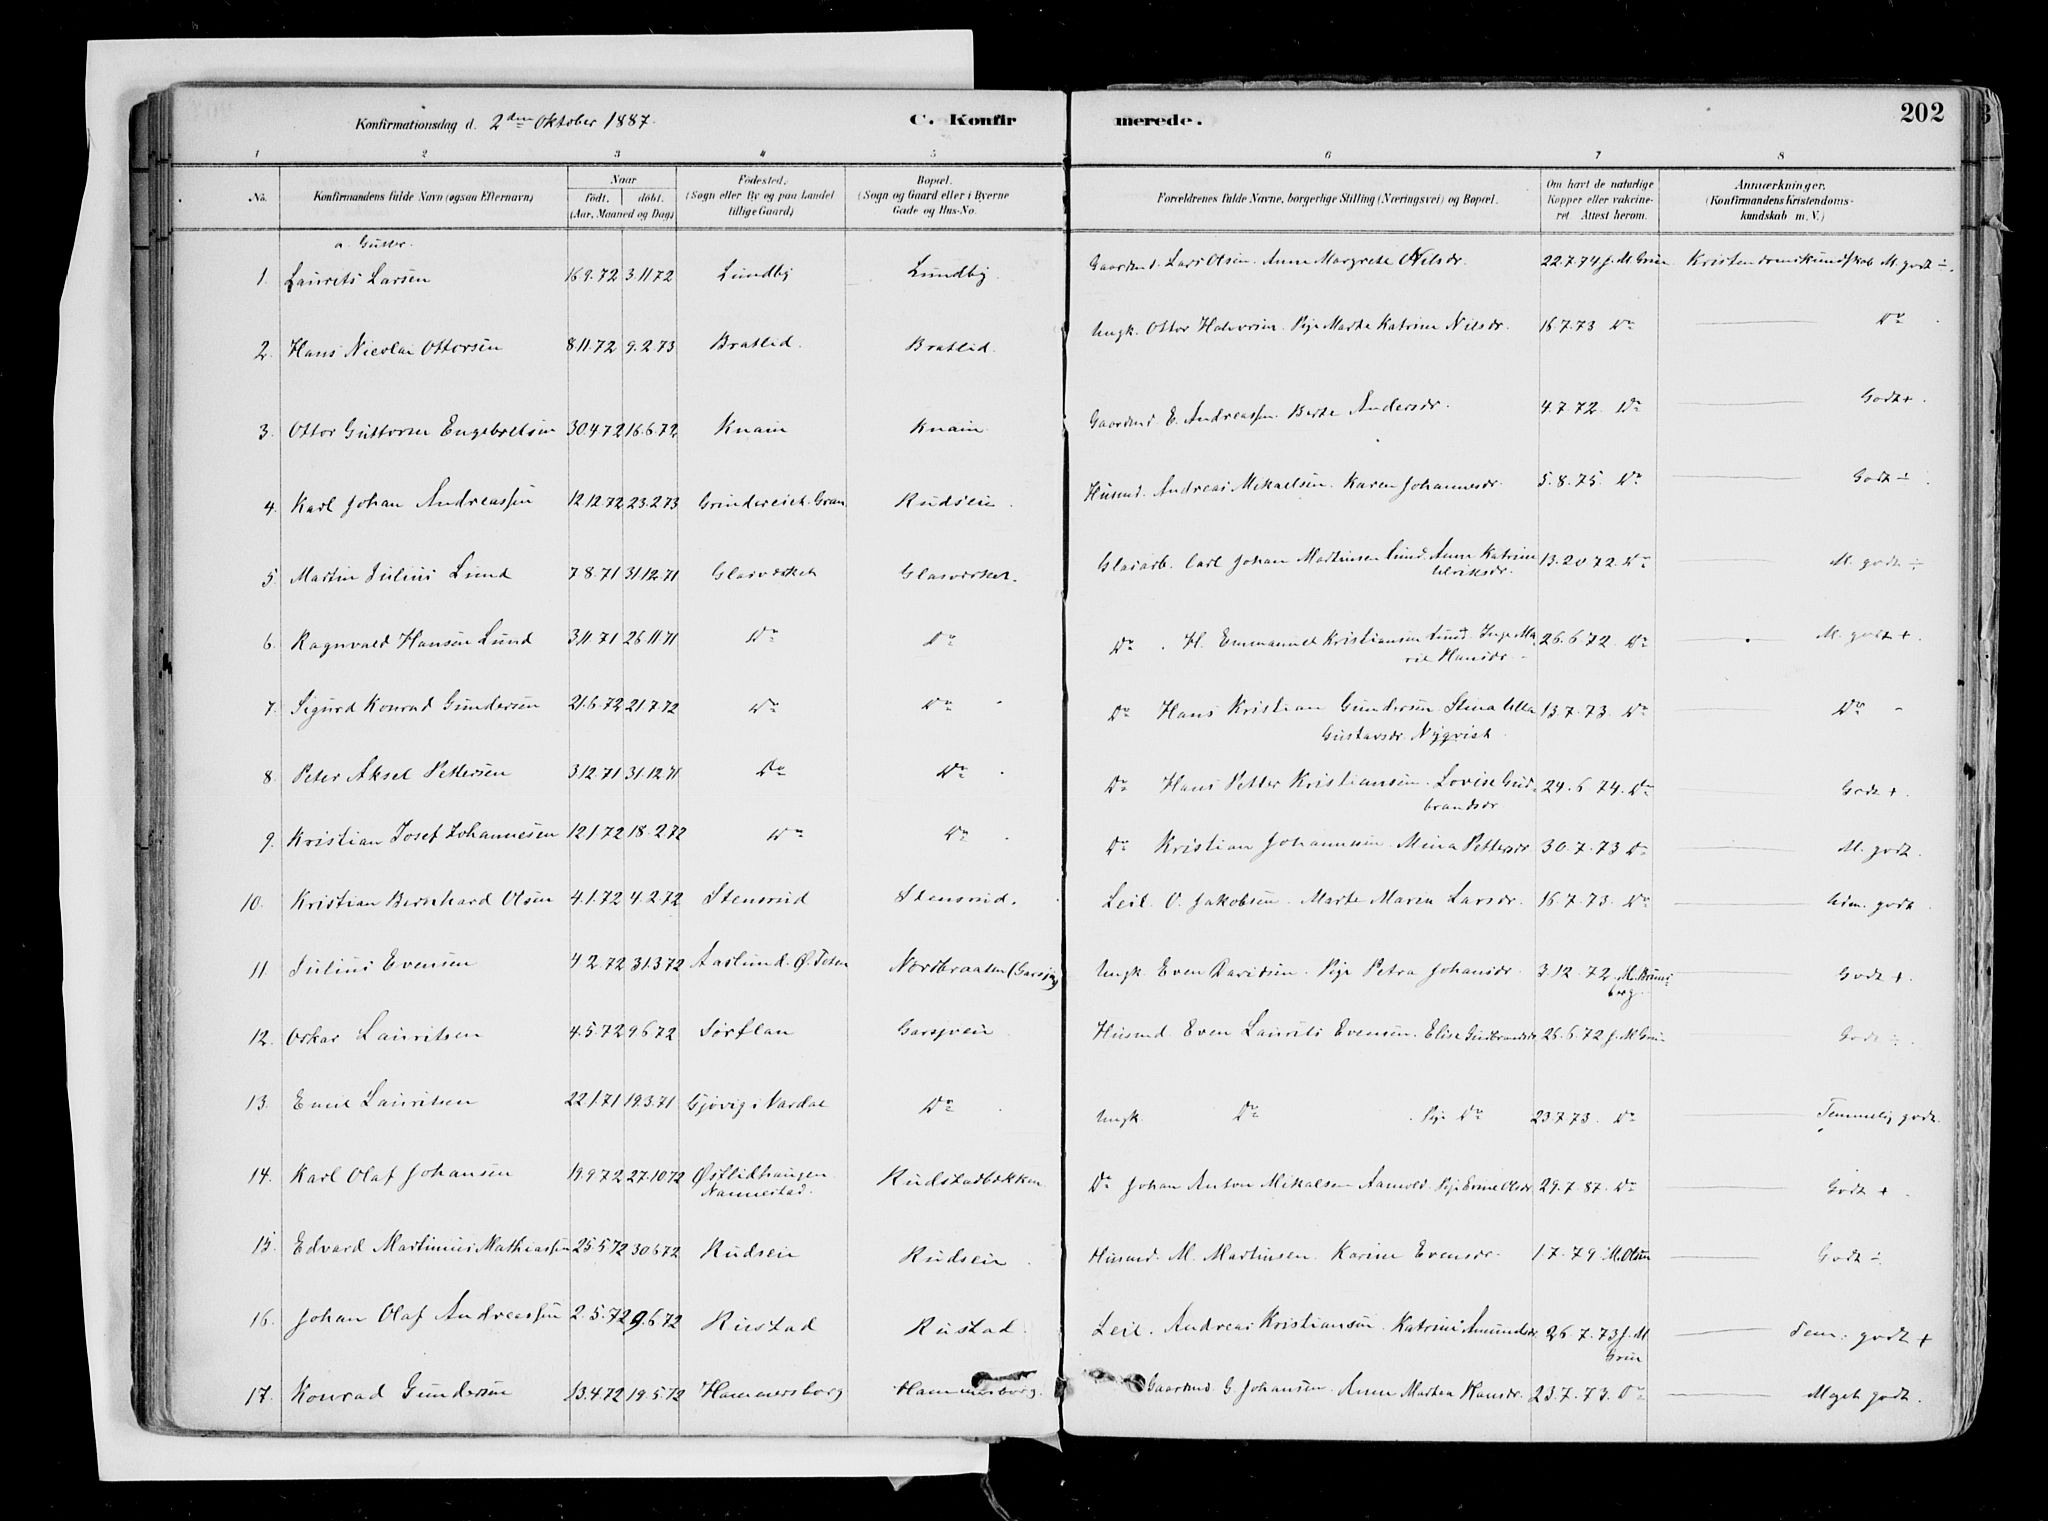 Konfirmationsdag d. 2den Oktober 1887. C. Konfirmerede. 202
1 2 3 4 5 6 7 8
No. Konfirmandens fulde Navn (ogsaa Efternavn) Naar født. døbt. (Aar, Maaned og Dag) Fødested. (Sogn eller By og paa Landet tillige Gaard) Bopæl. (Sogn og Gaard eller i Byerne Gade og Hus-No. Forældrenes fulde Navne, borgerlige Stilling (Næringsvei) og Bopæl. Om havt de naturlige Kopper eller vakcineret. Attest herom. Anmærkninger. (Konfirmandens Kristendomskundskab m. V.)
a. Gutter.
1. Laurits Larsen 16.9.72 3.11.72 Lundby Lundby. Gaardmd. Lars Olsen. Anne Margrete Nilsdr. 22.7.74 J. M. Grün Kristendomskundskab M. godt ÷.
2. Hans Nicolai Ottersen 8.11.72 9.2.73 Bratlid. Bratlid. Ungk. Otter Halvorsen. Pige Marte Katrine Nilsdr. 16.7.73 Do Do
3. Otter Guttorm Engebretsen 30.4.72 16.6.72 Knain Knain Gaardmd E. Andreassen. Berte Andersdr. 4.7.72 Do Godt+.
4. Karl Johan Andreassen 12.12.72 23.2.73 Grindereiet. Gran. Rudseie. Husmd. Andreas Mikaelsen. Karen Johannesdr. 5.8.75. Do Godt ÷
5. Martin Julius Lund 7.8.71 31.12.71 Glasværket Glasværket. Glasarb. Carl Johan Martinsen Lund. Anne Katrine Ulriksdr. 13.20.72. Do M. godt ÷
6. Ragnvald Hansen Lund 3.11.71 26.11.71 Do Do Do H. Emmanuel Kristiansen Lund. Inge Marie Hansdr. 26.6.72. Do M. godt +.
7. Sigurd Konrad Gundersen 21.6.72 21.7.72 Do Do Do Hans Kristian Gundersen Stina Ulla Gustavsdr. Nyqvist. 13.7.73. Do Do
8. Peter Aksel Pettersen 3.12.71 31.12.71 Do Do Do Hans Petter Kristiansen. Lovise Gudbrandsdr 24.6.74. Do Godt +.
9. Kristian Josef Johannesen 12.1.72 18.2.72 Do Do Do Kristian Johannesen. Mina Pettersdr 30.7.73 Do M. godt.
10. Kristian Bernhard Olsen 4.1.72 4.2.72 Stensrud Stensrud. Leil. O. Jakobsen. Marte Marie Larsdr. 16.7.73 Do godt
11. Julius Evensen 4.2.72 31.3.72 Aaslund. Ø. Toten Nordbraaten Ungk. Even Davidsen. Pige Petra Johansdr. 3.12.72.
12. Oskar Lauritsen 4.5.72 9.6.72 Garsjøeie Husmd Even Laurits Evensen. Elise Gudbrandsdr 26.6.72 J. M Grün Godt ÷.
13. Emil Lauritsen 22.1.71 19.3.71 Gjøvig i Vardal Do Ungk. Do Pige Do 23.7.73. Do Temmelig godt.
14. Karl Olaf Johansen 19.9.72 27.10.72 Østlidhaugen Nannestad. Rudstadbækken Do Johan Anton Mikalsen 29.7.87. Do Godt +
15. Edvard Martinius Mathiassen 25.5.72 30.6.72 Rudseie Rudseie Husmd. M. Martinsen. Karine Evensdr. 1.7.79 M. Olsen Godt ÷
16. Johan Olaf Andreassen 2.5.72 9.6.72 Rustad Rustad. Leil. Andreas Kristiansen. Katrine Amundsdr 26.7.73 J. M. Grün Tem. godt +
17. Konrad Gundersen 13.4.72 19.5.72 Hammersborg Hammersborg. Gaardmd. G. Johansen. Anne Martea Hansdr. 23.7.73. Do Meget godt.